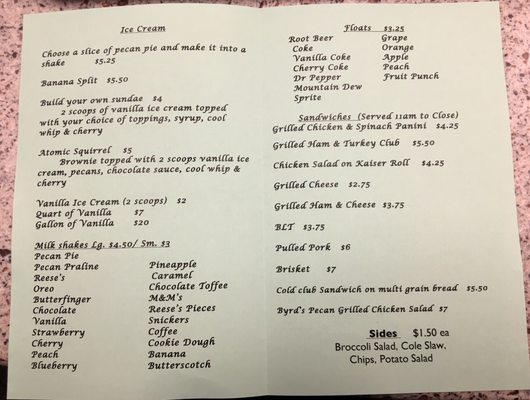 Ice Cream
Choose a slice of pecan pie and make it into a
shake $5.25
Banana Split $5.50
Build your own sundae $4
2 scoops of vanilla ice cream topped
with your choice of toppings, syrup, cool
whip & cherry
Atomic Squirrel $5
Brownie topped with 2 scoops vanilla ice
cream, pecans, chocolate sauce, cool whip &
cherry
Vanilla Ice Cream (2 scoops) $2
Quart of Vanilla $7
Gallon of Vanilla $20
Milk shakes Lg. $4.50/ Sm. $3
Pecan Pie
Pecan Praline
Reese's
Oreo
Butterfinger
Chocolate
Vanilla
Strawberry
Cherry
Peach
Blueberry
Pineapple
Caramel
Chocolate Toffee
M&M's
Reese's Pieces
Snickers
Coffee
Cookie Dough
Banana
Butterscotch
Floats $3.25
Root Beer
Coke
Vanilla Coke
Cherry Coke
Dr Pepper
Mountain Dew
Sprite
Grape
Orange
Apple
Peach
Fruit Punch
Sandwiches (Served 11am to Close)
Grilled Chicken & Spinach Panini $4.25
Grilled Ham & Turkey Club $5.50
Chicken Salad on Kaiser Roll $4.25
Grilled Cheese $2.75
Grilled Ham & Cheese $3.75
BLT $3.75
Pulled Pork $6
Brisket $7
Cold club Sandwich on multi grain bread $5.50
Byrd's Pecan Grilled Chicken Salad $7
Sides $1.50 ea
Broccoli Salad, Cole Slaw,
Chips, Potato Salad